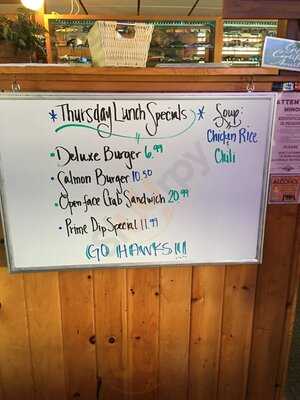 * Thursday Lunch Specials *
• Deluxe Burger 6.99
• Salmon Burger 10.50
• Open face Crab Sandwich 20.99
• Prime Dip Special 11.99
GO HAWKS!!!
Soup:
Chicken Rice
&
Chili
ATTEN
MINO
ALCOHOL